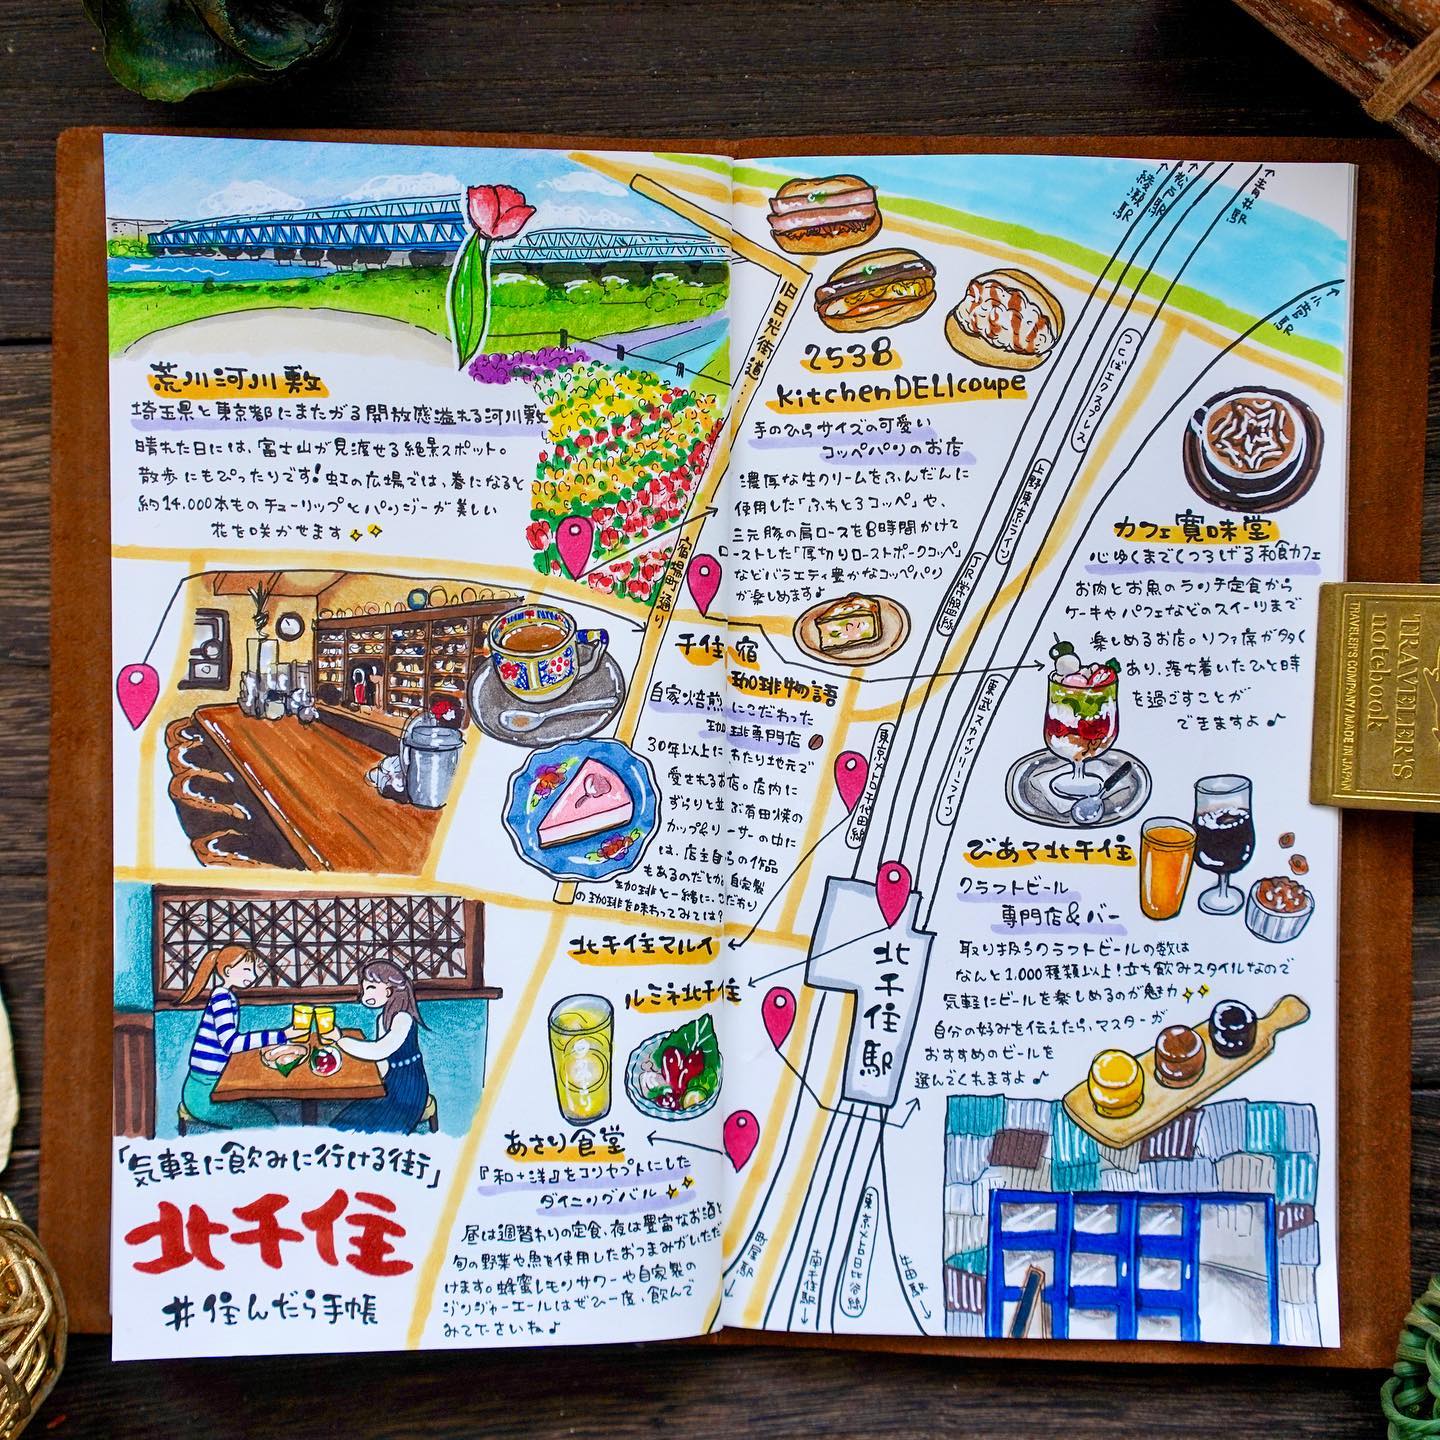 荒川河川敷
埼玉県と東京都にまたがる開放感溢れる河川敷
晴れた日には、富士山が見渡せる絶景スポット。
散歩にもぴったりです!虹の広場では、春になると
約14.000本ものチューリップとパンジーが美しい
花を咲かせます
旧日光街道
宿場町通り
千住宿
珈琲物語
自家焙煎にこだわった
珈琲専門店
30年以上にわたり地元で
愛されるお店。店内に
ずらりと並ぶ有田焼の
カップ&ソーサーの中に
は、店主自らの作品
もあるのだとか。自家製
の珈琲と一緒に、こだわり
の珈琲を味わってみては?
北千住マルイ
ルミネ北千住
あさり食堂
『和+洋』をコンセプトにした
ダイニングバル
昼は週替わりの定食、夜は豊富なお酒と
旬の野菜や魚を使用したおつまみがいただ
けます。蜂蜜レモンサワーや自家製の
ジンジャーエールはぜひ一度、飲んで
みてくださいね♪
「気軽に飲みに行ける街」
北千住
#住んだら手帳
2538
kitchenDELIcoupe
手のひらサイズの可愛い
コッペパンのお店
濃厚な生クリームをふんだんに
使用した「ふちとろコッペ」や、
三元豚の肩ロースを8時間かけて
ローストした「厚切りローストポークコッペ」
などバラエティ豊かなコッペパン
が楽しめますよ♪
綾瀬駅
松戸駅
青井駅
小菅駅
つくばエクスプレス
上野東京ライン
JR常磐線
東武スカイツリーライン
東京メトロ千代田線
カフェ寛味堂
心ゆくまでくつろげる和食カフェ
お肉とお魚のランチ定食から
ケーキやパフェなどのスイーツまで
楽しめるお店。ソファ席が多く
あり、落ち着いたひと時
を過ごすことが
できますよ♪
びあマ北千住
クラフトビール
専門店&バー
取り扱うクラフトビールの数は
なんと1,000種類以上!立ち飲みスタイルなので
気軽にビールを楽しめるのが魅力
自分の好みを伝えたら、マスターが
おすすめのビールを
選んでくれますよ♪
北千住駅
町屋駅
南千住駅
東京メトロ日比谷線
牛田駅
TRAVELER'S
notebook
TRAVELER'S COMPANY MADE IN JAPAN